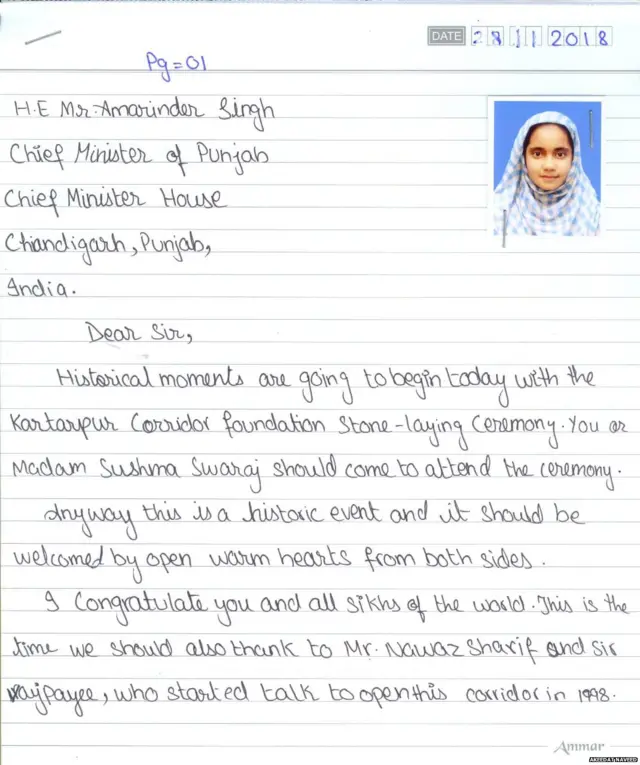 DATE 28 11 2018
Pg=01
H.E Mr. Amarinder Singh
Chief Minister of Punjab
Chief Minister House
Chandigarh, Punjab,
India.
Dear Sir,
Historical moments are going to begin today with the
Kartarpur Corridor foundation Stone-laying Ceremony. You or
Madam Sushma Swaraj should come to attend the ceremony.
Anyway this is a historic event and it should be
welcomed by open warm hearts from both sides.
I Congratulate you and all sikhs of the world. This is the
time we should also thank to Mr. Nawaz Sharif and Sir
Vajpayee, who started talk to open this corridor in 1998.
Ammar
AKEEDAT NAVEED